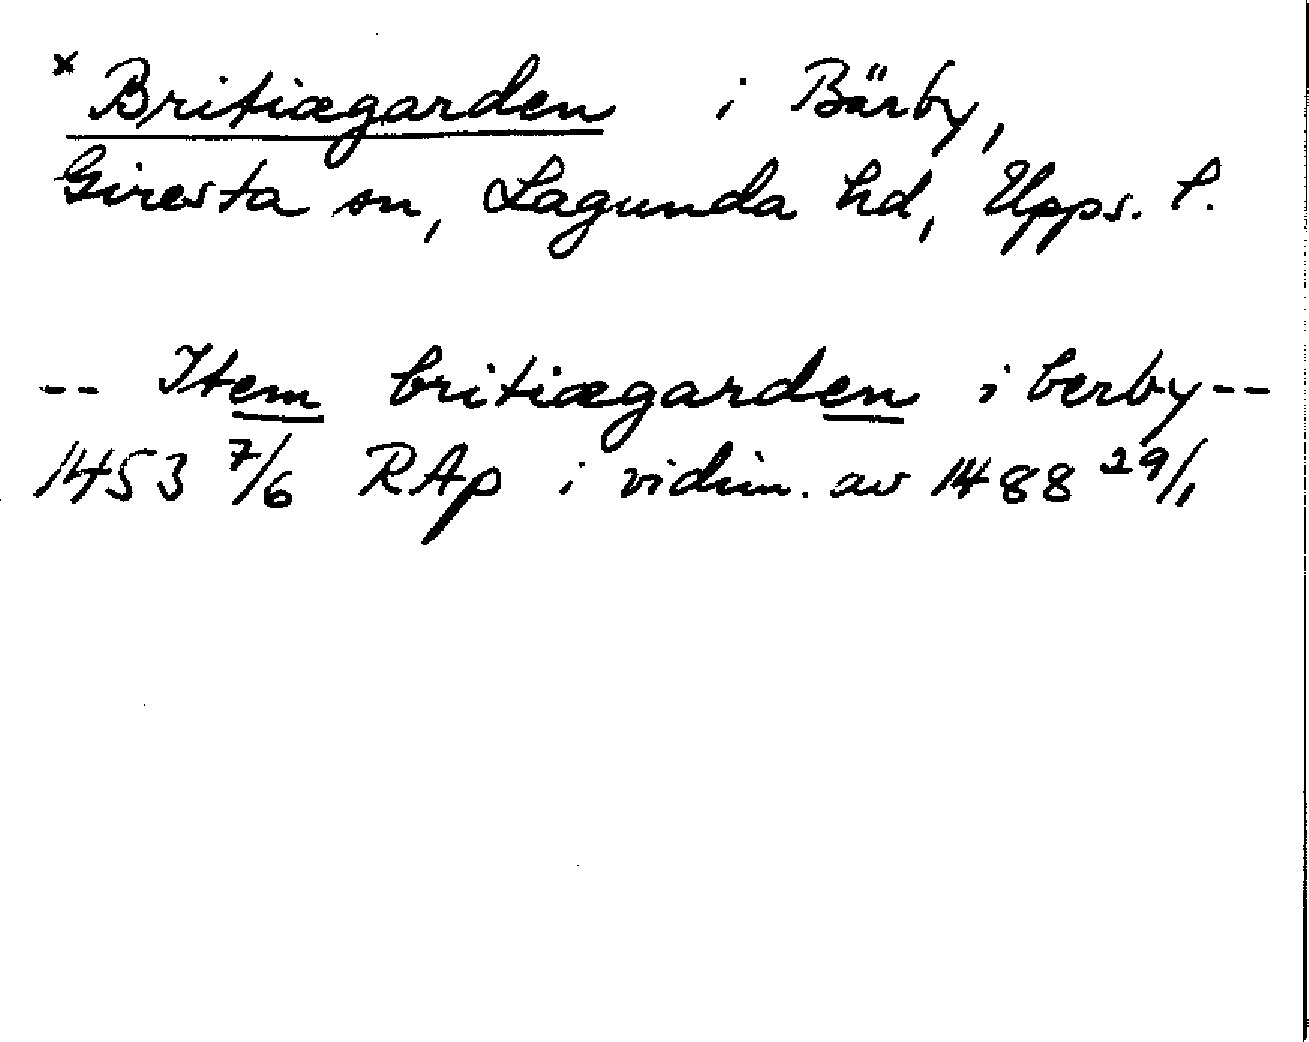 x Britiægarden i Bärby,
Giresta sn, Lagunda hd, Upps. l.
-- Item britiægarden i berby --
1453 7/6 RAp i vidim. av 1488 29/1